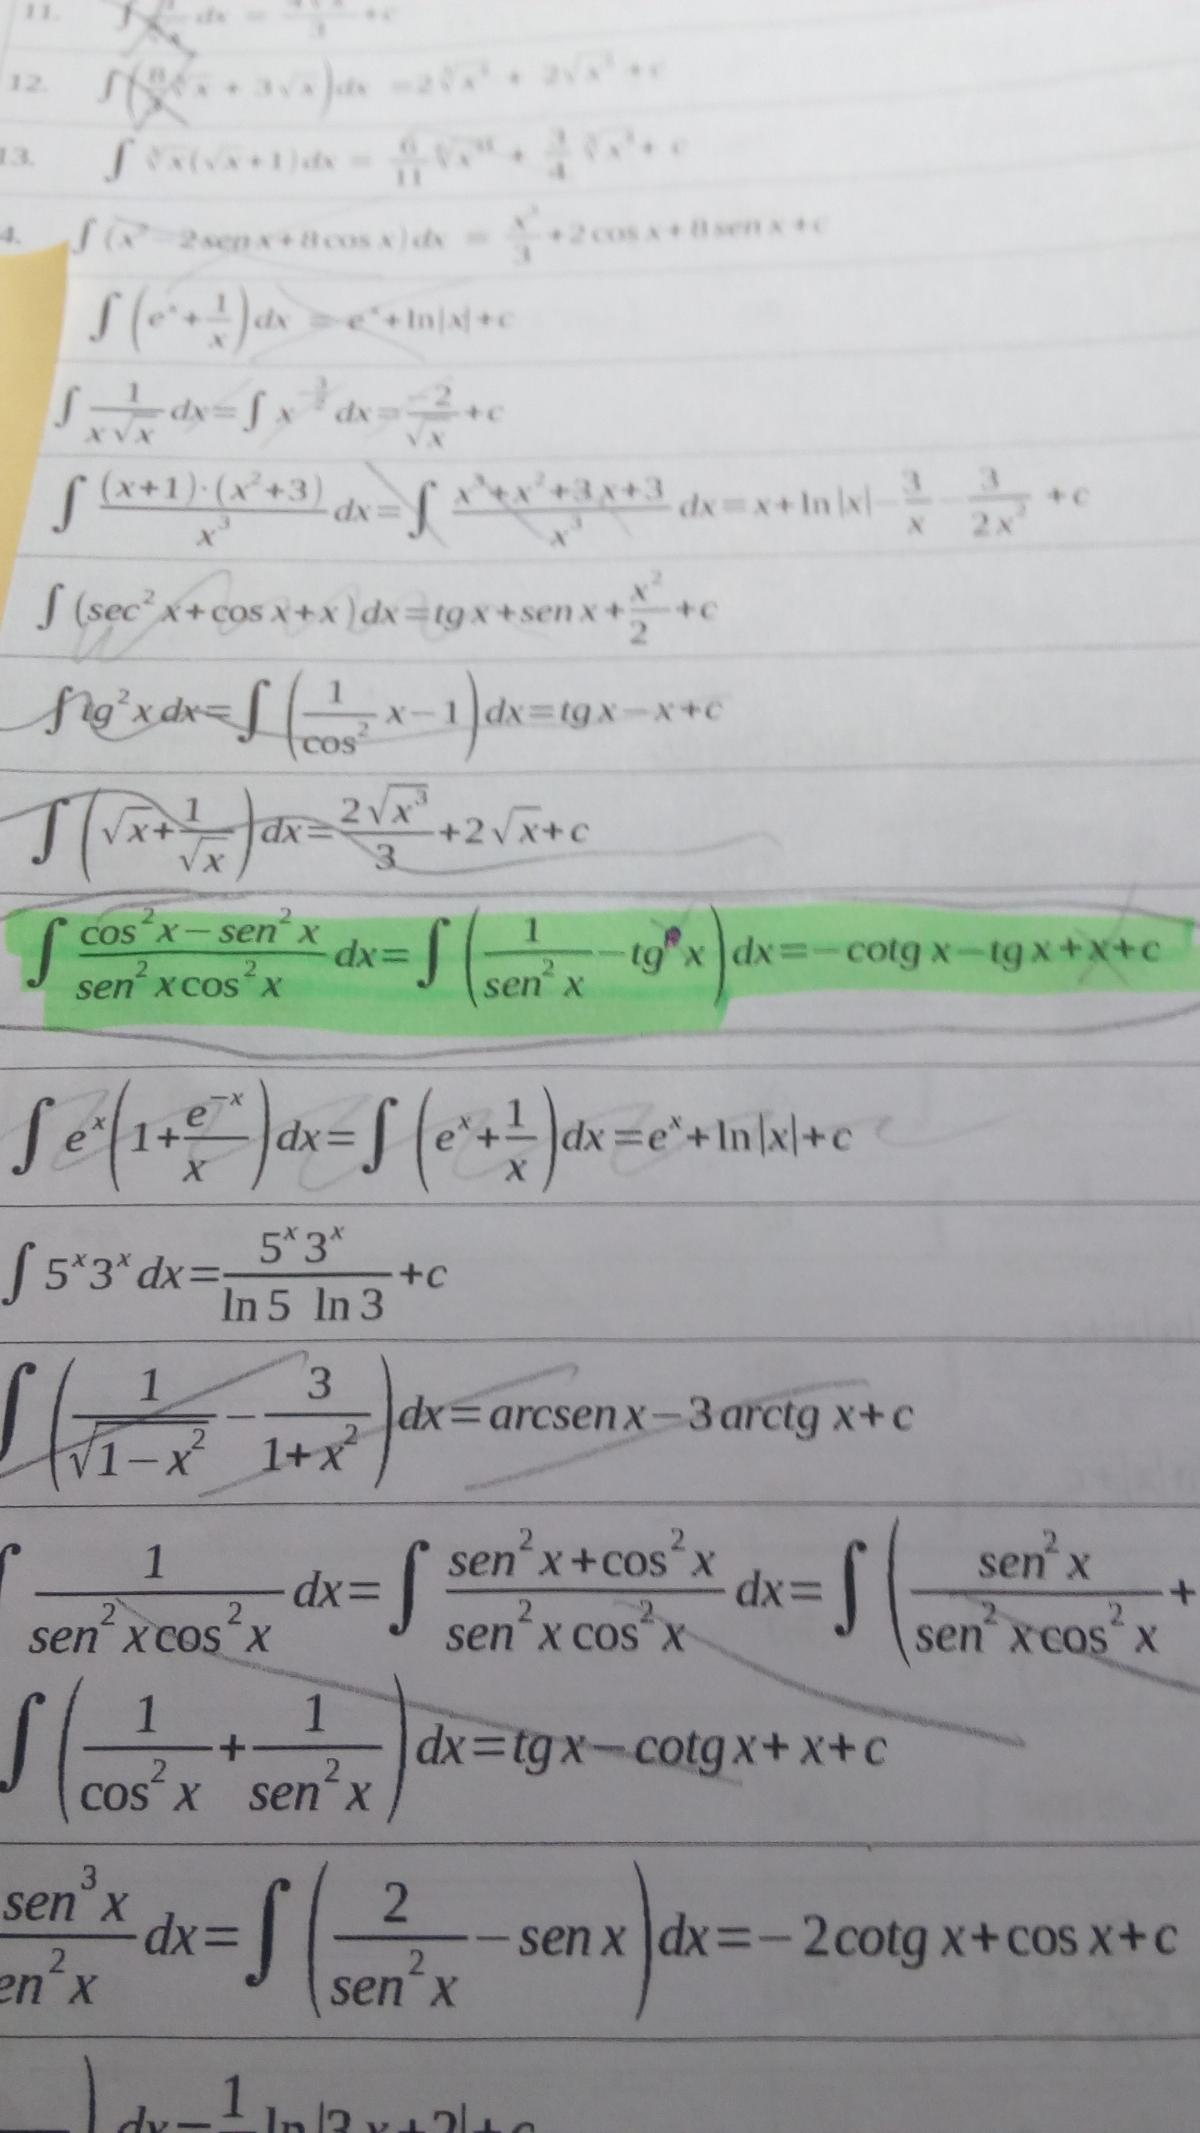 11. ∫ dx = 3 +c
12. ∫( ∛x + 3√x)dx = 2 + 2√x³ + c
13. ∫ ∛x(√x+1)dx = 6/11 + 3/4 + c
4. ∫(x² − 2 sen x + 8 cos x) dx = x³/3 + 2 cos x + 8 sen x + c
∫(eˣ + 1/x) dx = eˣ + ln|x| + c
∫ 1/(x√x) dx = ∫ x^(−3/2) dx = −2/√x + c
∫ (x+1)·(x²+3)/x³ dx = ∫ (x³+x²+3x+3)/x³ dx = x + ln|x| − 3/x − 3/(2x²) + c
∫ (sec² x + cos x + x) dx = tg x + sen x + x²/2 + c
∫ tg² x dx = ∫ (1/cos² x − 1) dx = tg x − x + c
∫ (√x + 1/√x) dx = 2√x³/3 + 2√x + c
∫ (cos² x − sen² x)/(sen² x cos² x) dx = ∫ (1/sen² x − tg x) dx = − cotg x − tg x + x + c
∫ eˣ(1 + e⁻ˣ/x) dx = ∫ (eˣ + 1/x) dx = eˣ + ln|x| + c
∫ 5ˣ3ˣ dx = 5ˣ3ˣ/(ln 5 ln 3) + c
∫ (1/√(1−x²) − 3/(1+x²)) dx = arcsen x − 3 arctg x + c
∫ 1/(sen² x cos² x) dx = ∫ (sen² x + cos² x)/(sen² x cos² x) dx = ∫ (sen² x/(sen² x cos² x) +
∫ (1/cos² x + 1/sen² x) dx = tg x − cotg x + x + c
sen³ x/en² x dx = ∫ (2/sen² x − sen x) dx = − 2 cotg x + cos x + c
) dx = 1 ln|3x+2| + c